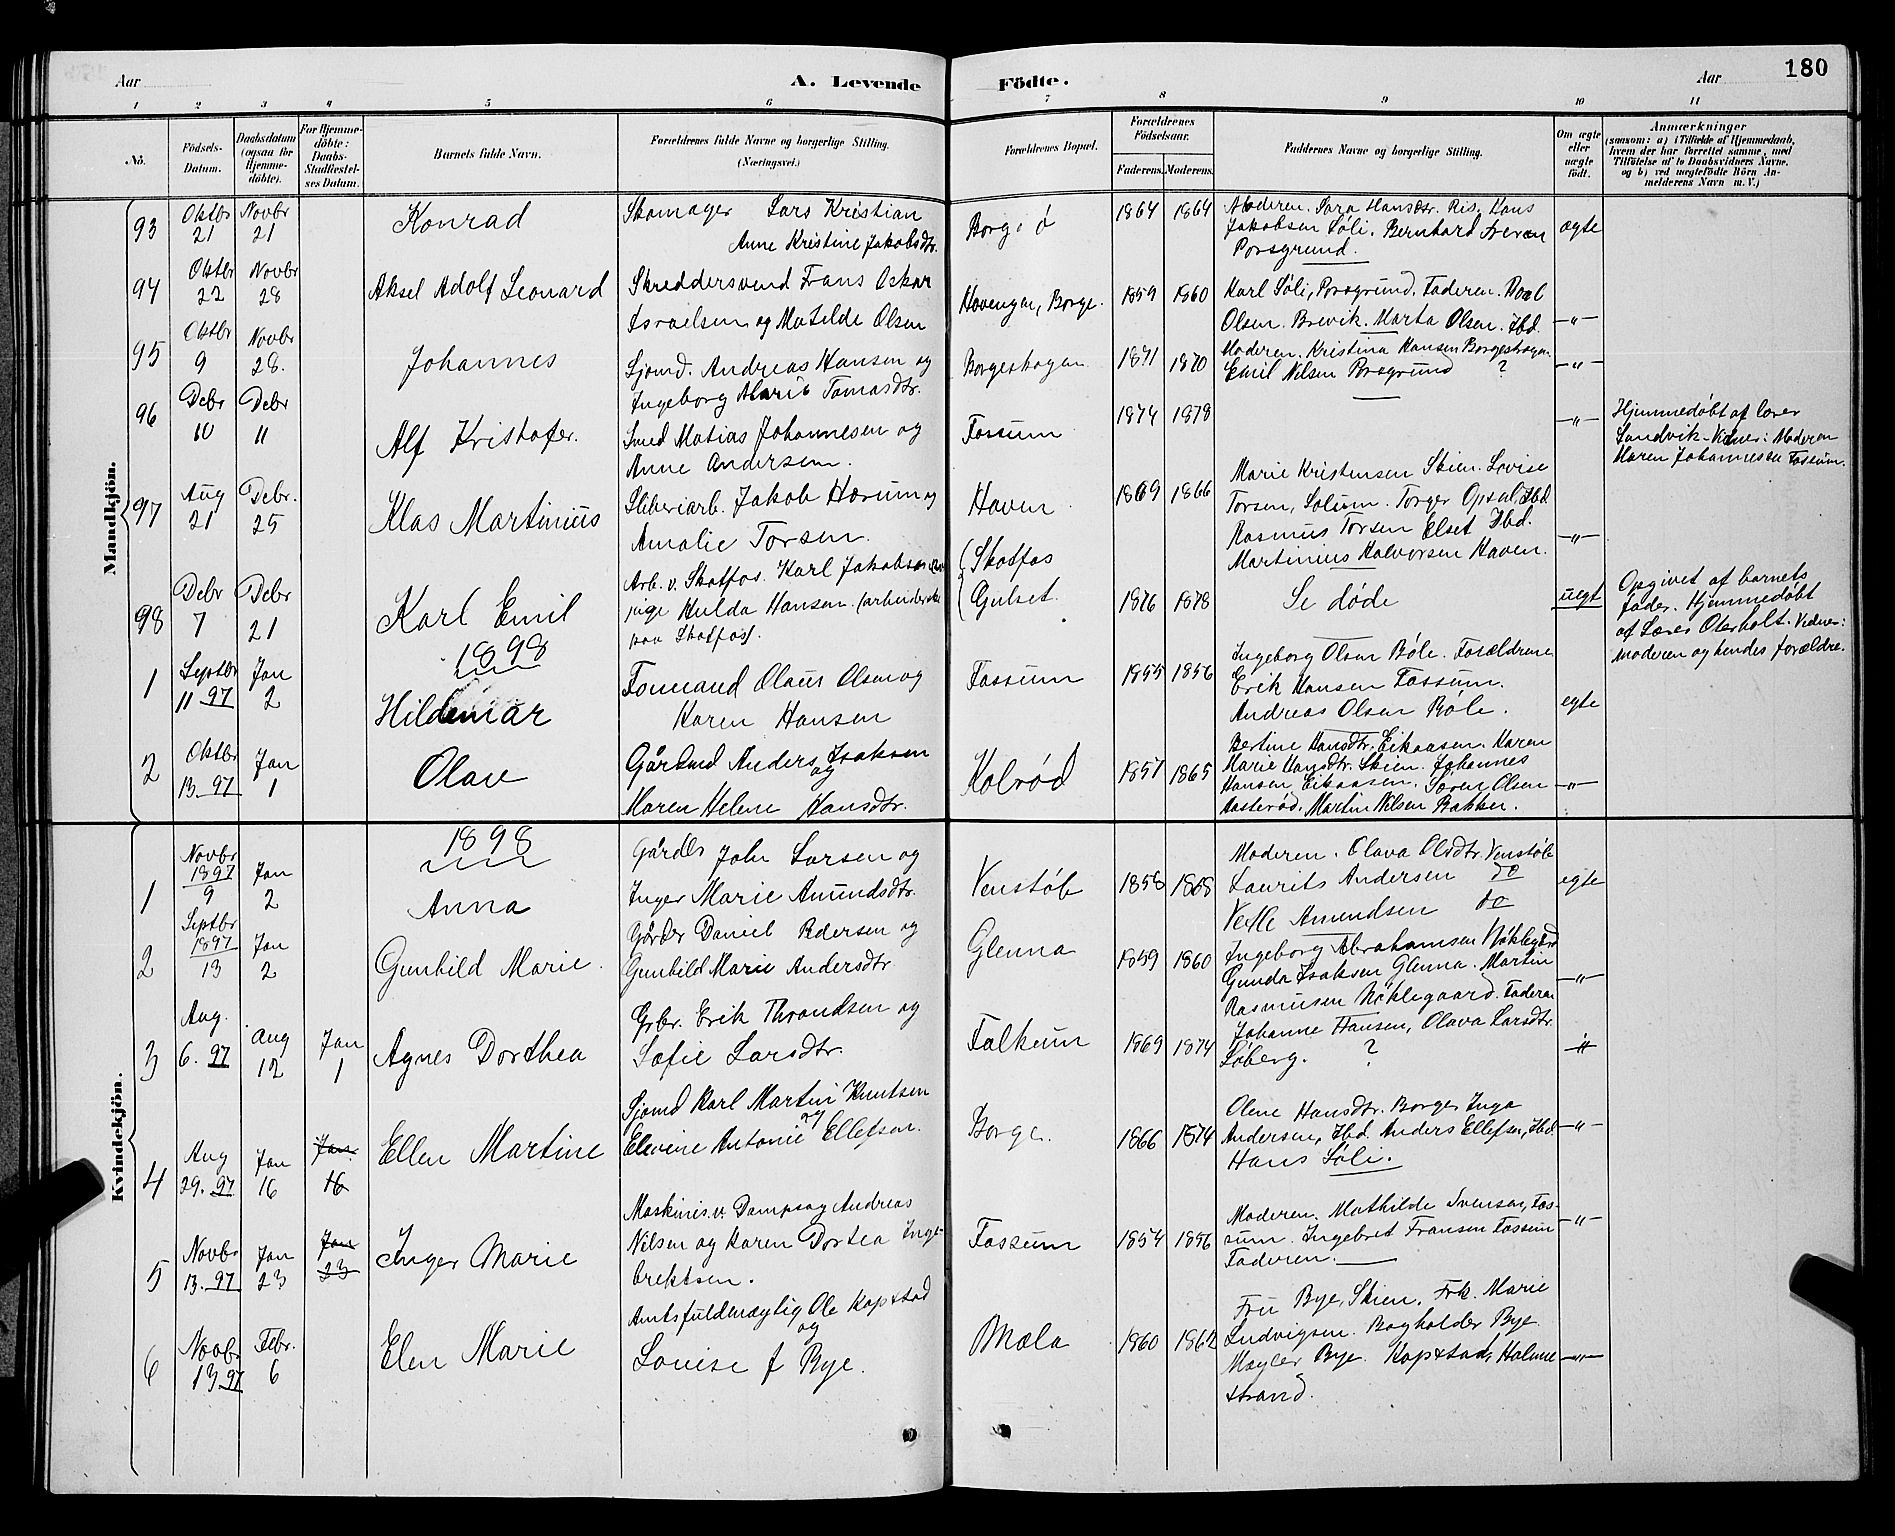 Aar
A. Levende
Födte.
Aar
180
1 2 3 4 5 6 7 8 9 10 11
Nô.
Födsels-
Datum.
Daabsdatum
(ogsaa for
Hjemme-
döbte).
For Hjemme-
döbte:
Daabs-
Stadfæstel-
ses Datum.
Barnets fulde Navn.
Forældrenes fulde Navne og borgerlige Stilling.
(Næringsvei.)
Forældrenes Bopæl.
Forældrenes
Födselsaar.
Faderens. Moderens.
Faddernes Navne og borgerlige Stilling.
Om ægte
eller
uægte
födt.
Anmærkninger
(saasom: a) i Tilfælde af Hjemmedaab,
hvem der har forrettet samme, med
Tilföielse af to Daabsvidners Navne,
og b) ved uægtefödte Börn An-
melderens Navn m. V.)
Mandkjön.
93
Oktbr
21
Novbr
21
Konrad
Skomager Lars Kristian
Anne Kristine Jakobsdtr.
Borge ö
1864 1864
Moderen. Sara Hansdtr. Ris. Hans
Jakobsen Söli. Bernhard
Porsgrund.
ægte
94
Oktbr
22
Novbr
28
Aksel Adolf Leonard
Skreddersvend Frans Oskar
Israelsen og Matilde Olsen
Hovengen, Borge.
1859 1860
Karl Söli, Porsgrund. Faderen.
Olsen. Brevik. Marta Olsen. Ibd.
-"-
95
Oktbr
9
Novbr
28.
Johannes
Sjømd. Andreas Hansen og
Ingeborg Marie Tomasdtr.
Borgeshagen
1871 1870
Moderen. Kristina Hansen Borgeshagen.
Emil Nilsen Porsgrund ?
-"-
96
Debr
10
Debr
11
Alf Kristofer.
Smed Matias Johannesen og
Anne Andersen.
Fossum
1874 1878
-"-
Hjemmedöbt af lærer
Sandvik. Vidner: Moderen
Maren Johannesen Fossum.
97
Aug
21
Debr.
25
Klas Martinius
Sliberiarb. Jakob Hærum og
Amalie Torsen.
Haven
1869 1866
Marie Kristensen Skien. Lovise
Torsen, Solum. Torger Opsal, Ibd.
Rasmus Torsen Elset Ibd.
Martinius Halvorsen Haven.
-"-
98
Debr
7
Debr
21
Karl Emil
Arb. v. Skotfos. Karl Jakobsen
pige Hulda Hansen. (arbeiderske
paa Skotfos).
(Skotfos
(Gulset.
1876 1878
Se döde
uegt
Opgivet af barnets
fader. Hjemmedöbt
af Lærer Oterholt. Vidner:
moderen og hendes forældre.
1898
1
Septbr
11 97
Jan
2
Hildemar
Formand Olaus Olsen og
Karen Hansen
Fossum
1855 1856
Ingeborg Olsen Böle. Forældrene
Erik Hansen Fossum.
Andreas Olsen Böle.
egte
2
Oktbr
13. 97
Jan
1
Olav
Gårdmd Anders Isaksen
og
Maren Helene Hansdtr.
Kolröd
1857 1865
Bertine Hansdtr. Eikaasen. Karen
Marie Hansdtr. Skien. Johannes
Hansen Eikaasen. Sören Olsen
Aasteröd. Martin Nilsen Bakken.
-"-
Kvindekjön.
1898
1
Novbr
1897
9
Jan
2
Anna
Gårdbr John Larsen og
Inger Marie Amundsdtr.
Venstöb
1858 1868
Moderen. Olava Olsdtr. Venstöb
Laurits Andersen do
Amundsen do
egte
2
Septbr
1897
13
Jan
2
Gunhild Marie.
Gårdbr Daniel Pedersen og
Gunhild Marie Andersdtr
Glenna
1859 1860
Ingeborg Abrahamsen Nöklegård
Gunda Isaksen Glenna. Martin
Rasmusen Nöklegaard. Faderen
-"-
3
Aug.
6. 97
Aug
12
Jan
1
Agnes Dorthea
Grbr. Erik Throndsen og
Sofie Larsdtr.
Falkum
1869 1874
Johanne Hansen, Olava Larsdtr.
Löberg. ?
-"-
4
Aug
29. 97
Jan
16
Jan
16
Ellen Martine
Sjømd Karl Martin Knutsen
og
Elevine Antonie Ellefsen.
Borge.
1866 1874
Olene Hansdtr. Borge, Inga
Andersen, Ibd. Anders Ellefsen, Ibd.
Hans Söli.
-"-
5
Novbr
13. 97
Jan
23
Jan
23
Inger Marie
Maskinis. v. Dampsag Andreas
Nilsen og Karen Dortea Inge-
brektsen.
Fossum
1854 1856
Moderen. Mathilde Svensen, Fos-
sum. Ingebret Fransen Fossum
Faderen.
-"-
6
Novbr
13 97
Febr.
6
Elen Marie
Amtsfuldmægtig Ole Kopstad
og
Louise f Bye.
Mæla
1860 1862
Fru Bye, Skien. Frk. Marie
Ludvigsen. Bogholder Bye.
Mægler Bye. Kopstad, Holme
strand.
-"-